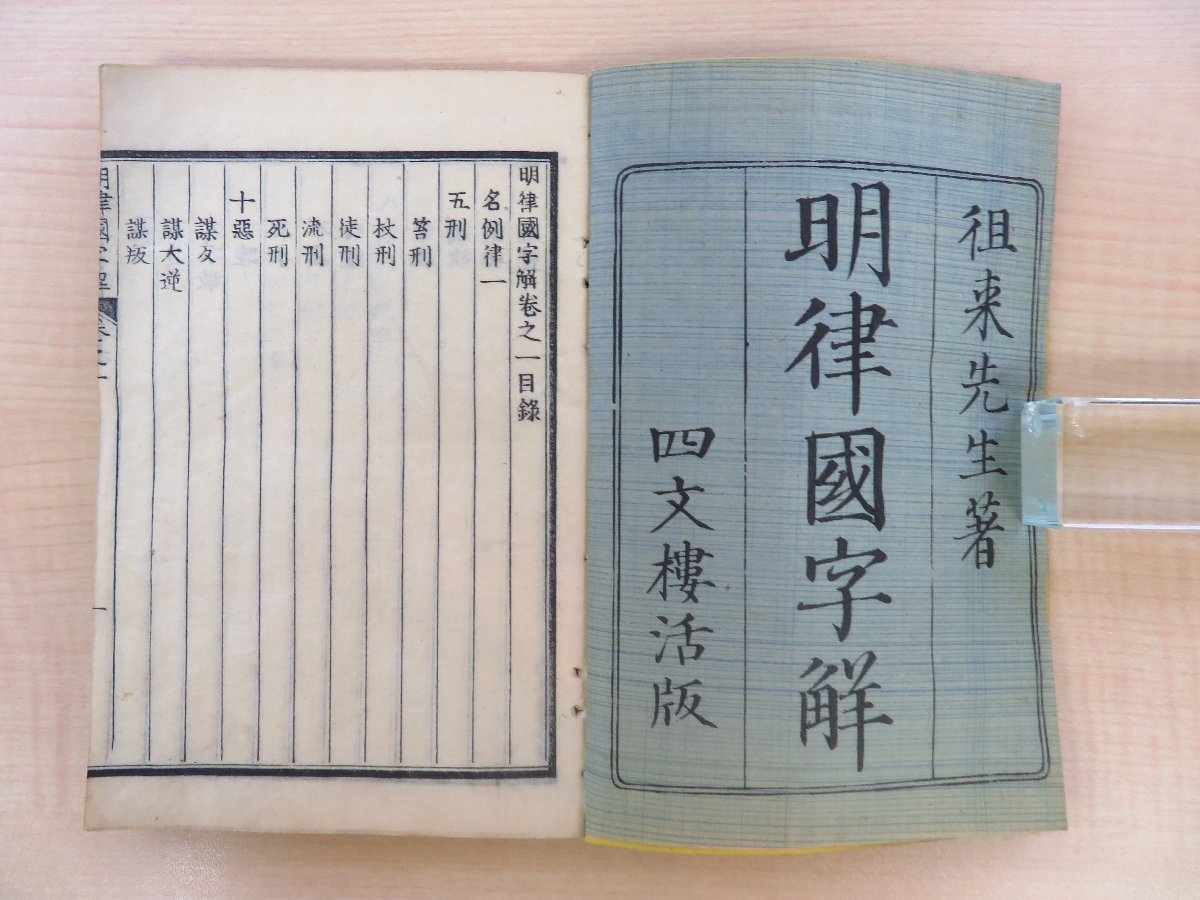 徂來先生著
明律國字解
四文樓活版
明律國字解卷之一目錄
名例律一
五刑
笞刑
杖刑
徒刑
流刑
死刑
十惡
謀反
謀大逆
謀叛
明律國字解
卷之一
一